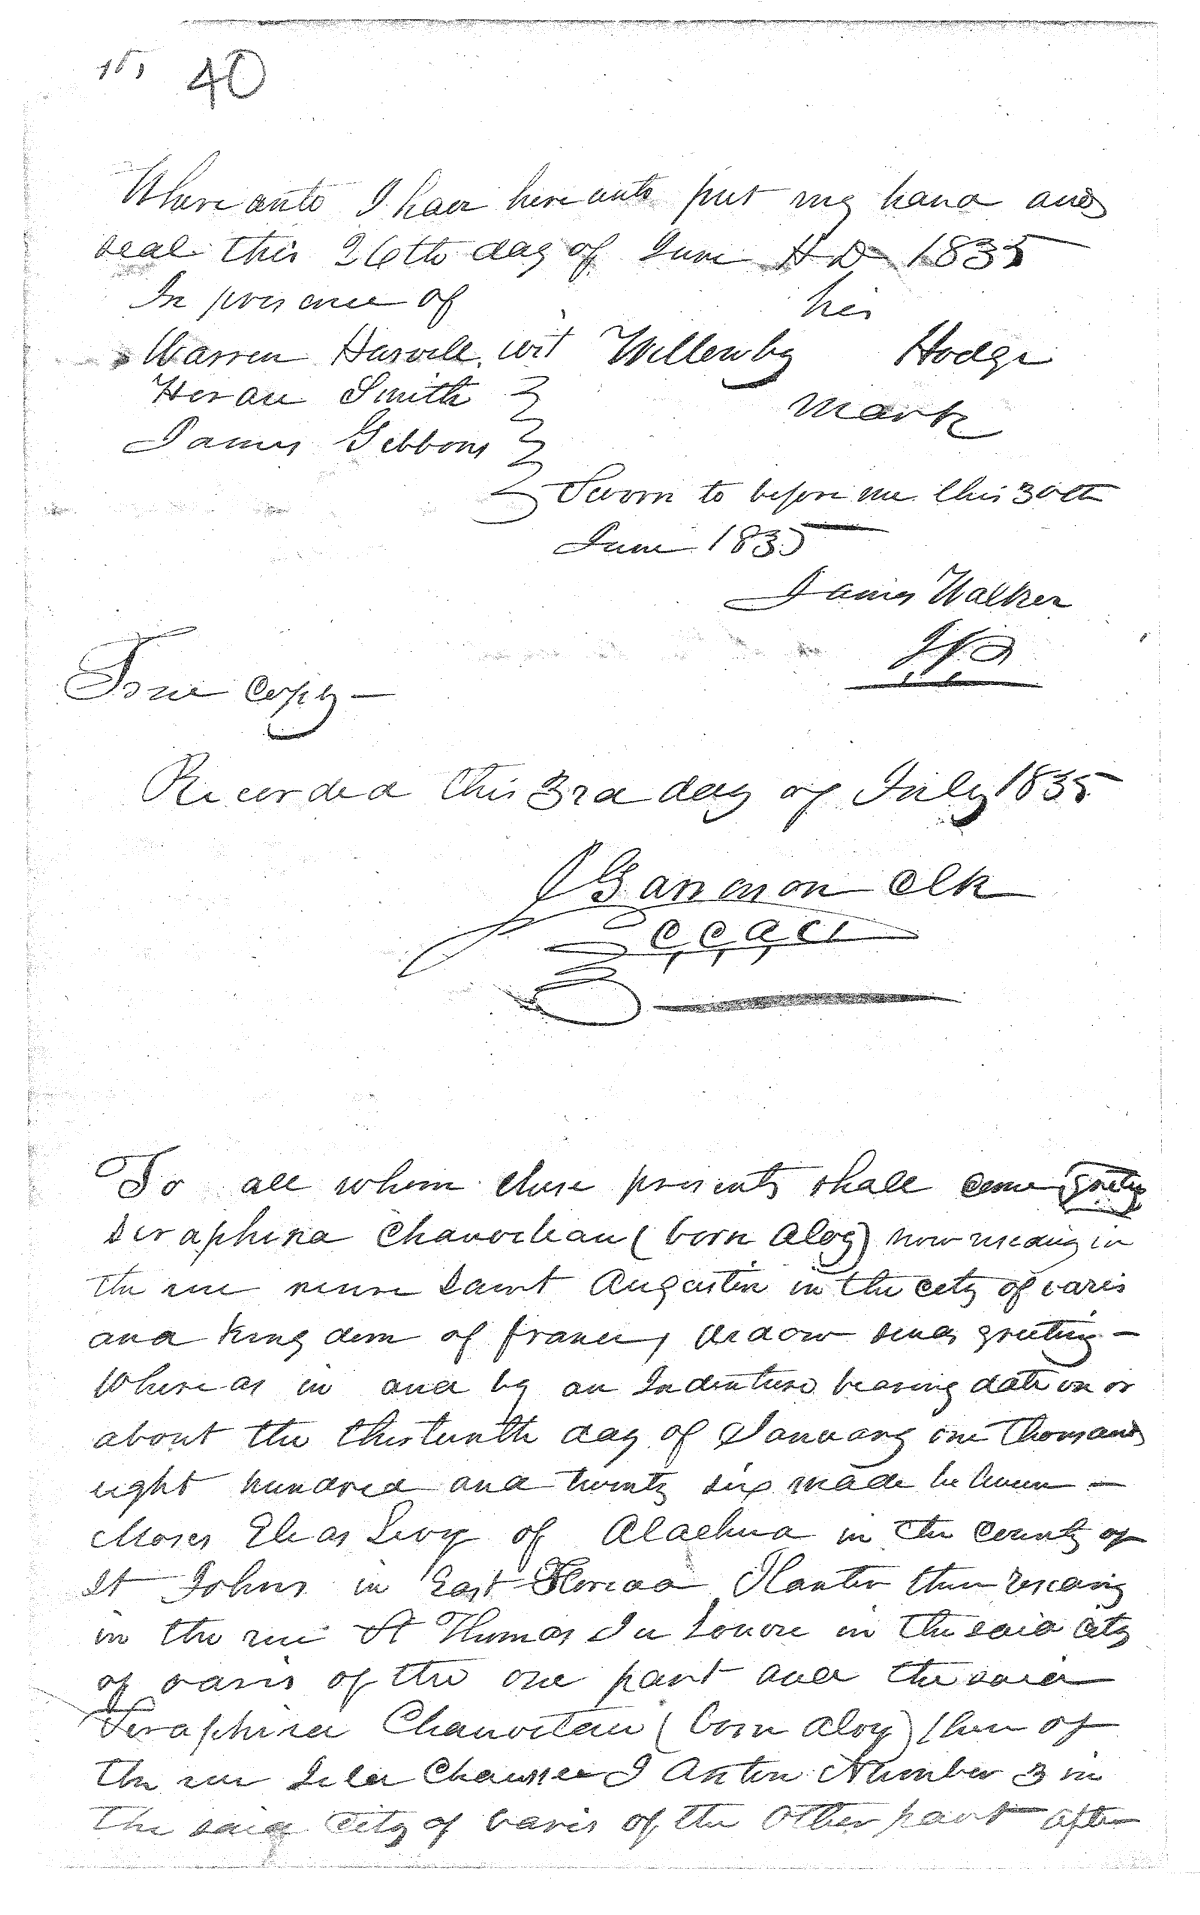 40
Where unto I have here unto put my hand and
seal this 26th day of June A D 1835
In presence of his
Warren Harvell wit Willowby Hodge
Horace Smith mark
James Gibbons
Sworn to before me this 30th
June 1835
James Walker
J P
True copy —
Recorded this 3rd day of July 1835
Clk
C C A C
To all whom these presents shall come greeting
Seraphina Chauviteau (born Aloy) now residing in
the rue neuve Saint Augustin in the city of Paris
and Kingdom of France, widow sends greeting —
Whereas in and by an Indenture bearing date on or
about the thirteenth day of January one Thousand
eight hundred and twenty six made between —
Moses Elias Levy of Alachua in the County of
St Johns in East Florida Planter then residing
in the rue St Thomas Du Louvre in the said City
of Paris of the one part and the said
Seraphina Chauviteau (born Aloy) then of
the rue De la Chaussee D Antin Number 3 in
the said City of Paris of the Other part after